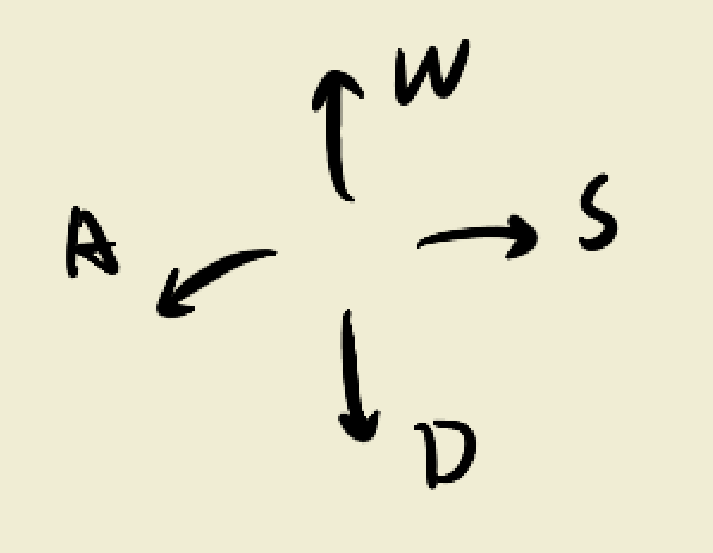 W
A
S
D